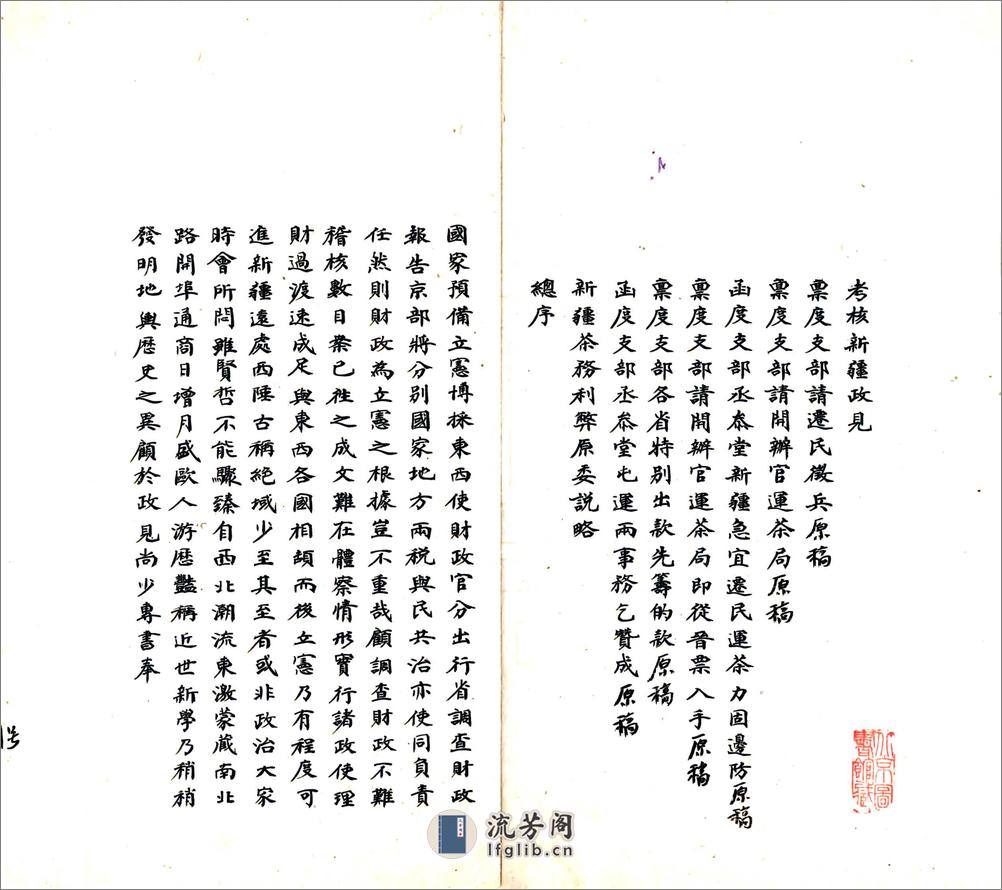 考核新疆政見
稟度支部請遷民徵兵原稿
稟度支部請開辦官運茶局原稿
函度支部丞叅堂新疆急宜遷民運茶力固邊防原稿
稟度支部請開辦官運茶局即從晉票入手原稿
稟度支部各省特別出款先籌的款原稿
函度支部丞叅堂屯運兩事務乞贊成原稿
新疆茶務利弊原委説略
總序
國家預備立憲博採東西使財政官分出行省調查財政
報告京部將分別國家地方兩税與民共治亦使同負責
任然則財政為立憲之根據豈不重哉顧調查財政不難
稽核數目業已往之成文難在體察情形實行諸政使理
財過渡速成足與東西各國相頡而後立憲乃有程度可
進新疆遠處西陲古稱絶域少至其至者或非政治大家
時會所問雖賢哲不能驟臻自西北潮流東激蒙藏南北
路開埠通商日增月盛歐人游歷豔稱近世新學乃稍稍
發明地輿歷史之異顧於政見尚少專書奉
北京圖
書館藏
流芳阁
lfglib.cn